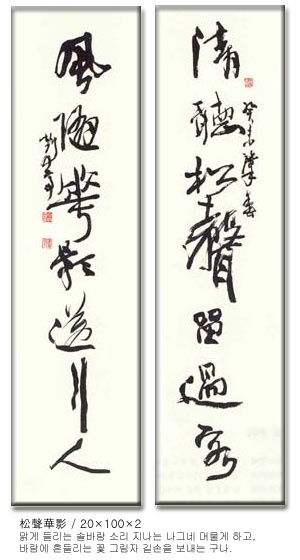 清聽松聲留過客
癸未肇春
風隨華影送行人
松聲華影 / 20×100×2
맑게 들리는 솔바람 소리 지나는 나그네 머물게 하고,
바람에 흔들리는 꽃 그림자 길손을 보내는 구나.